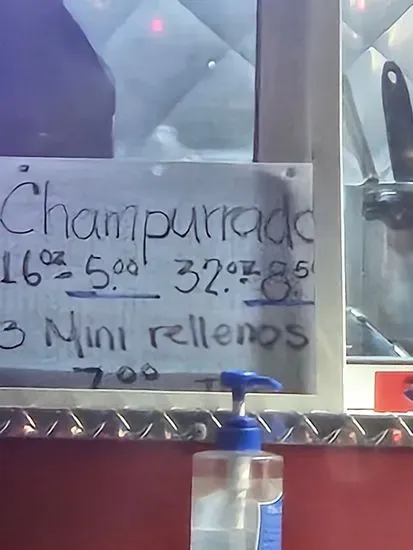 Champurrado
16oz- 5.00 32.oz- 8.5
3 Mini rellenos
7.00